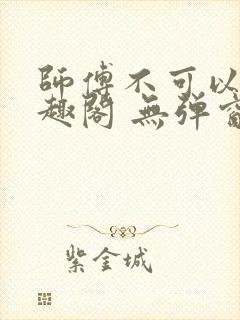 師傅不可以
趣閣 無彈窗
紫金城